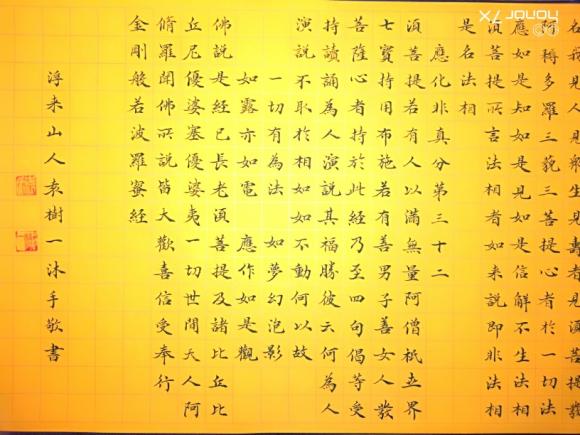 名我見人見衆生見壽者見須菩提發
阿耨多羅三藐三菩提心者於一切法
應如是知如是見如是信解不生法相
須菩提所言法相者如來說即非法相
是名法相
應化非真分第三十二
須菩提若有人以滿無量阿僧祇世界
七寶持用布施若有善男子善女人發
菩薩心者持於此經乃至四句偈等受
持讀誦為人演說其福勝彼云何為人
演說不取於相如如不動何以故
一切有為法 如夢幻泡影
如露亦如電 應作如是觀
佛說是經已長老須菩提及諸比丘比
丘尼優婆塞優婆夷一切世間天人阿
脩羅聞佛所說皆大歡喜信受奉行
金剛般若波羅蜜經
浮来山人袁樹一沐手敬書